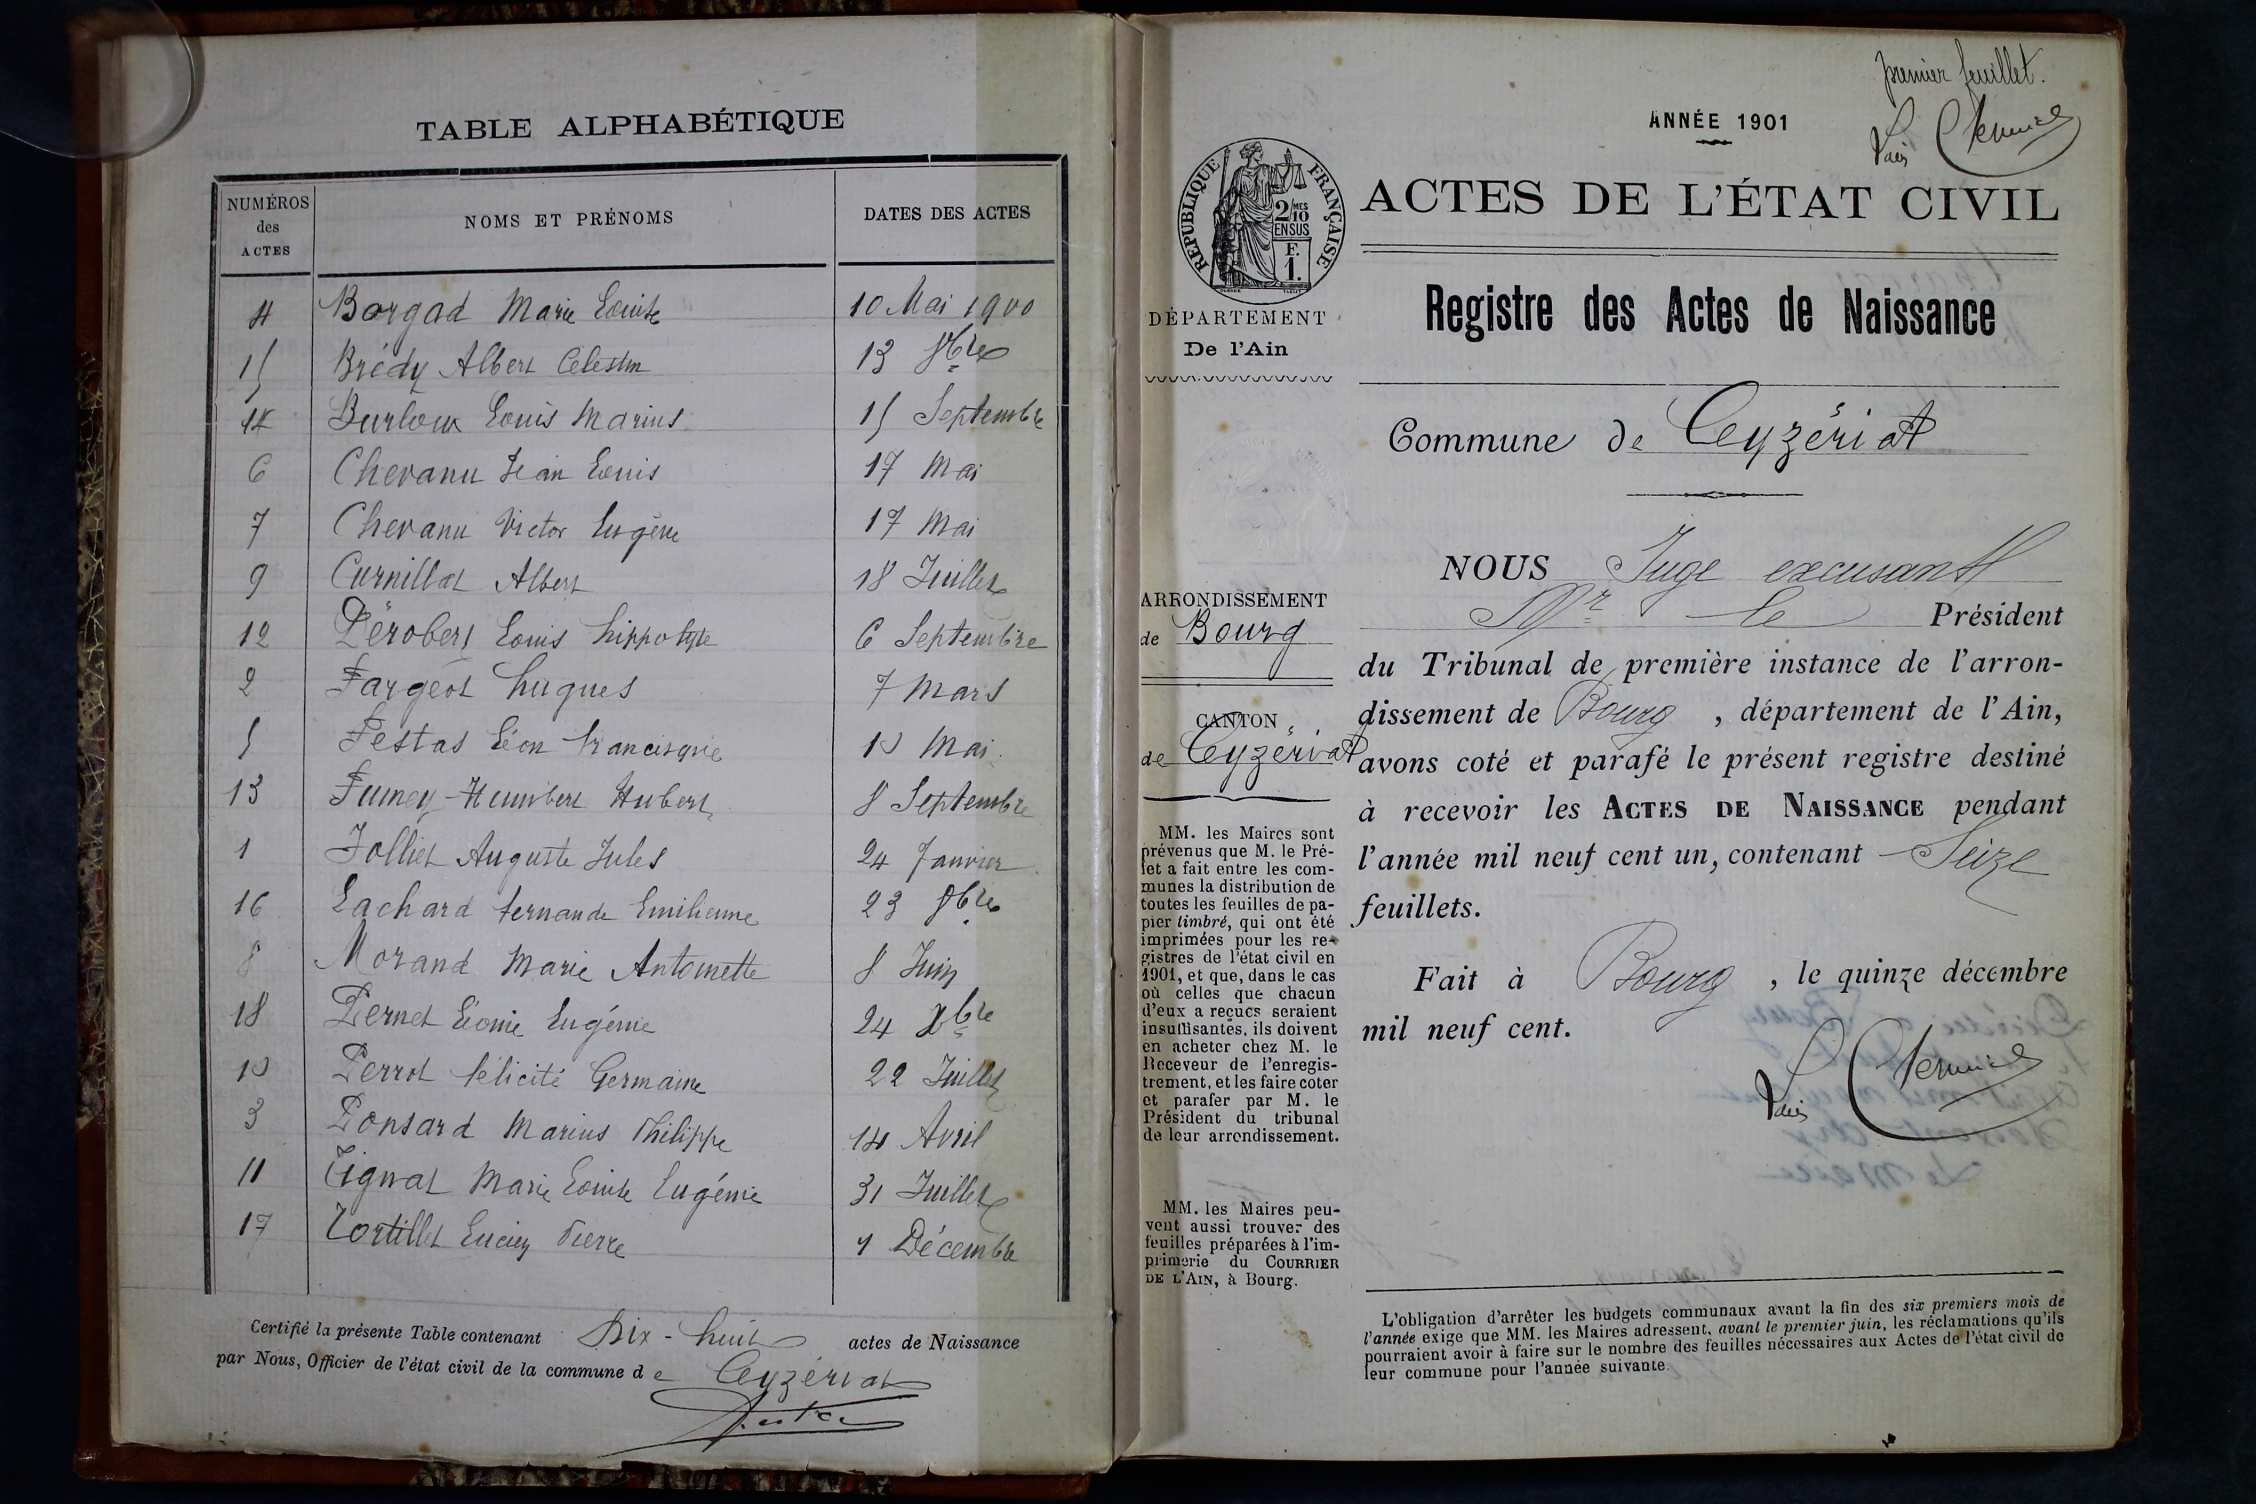 TABLE ALPHABÉTIQUE
NUMÉROS des ACTES
NOMS ET PRÉNOMS
DATES DES ACTES
4 Borgad Marie Louise 10 Mai 1900
15 Brédy Albert Celestin 13 8bre
14 Burloux Louis Marius 15 Septembre
6 Chevanu Jean Louis 17 Mai
7 Chevanu Victor Eugène 17 Mai
9 Curnillat Albert 18 Juillet
12 Pérobert Louis hippolyte 6 Septembre
2 Fargeot hugues 7 Mars
5 Festas Léon francisque 10 Mai
13 Fumey-Humbert Hubert 8 Septembre
1 Jolliet Auguste Jules 24 Janvier
16 Lachard fernande Emilienne 23 8bre
8 Morand Marie Antoinette 8 Juin
18 Pernet Léonie Eugénie 24 Xbre
10 Perrot félicité Germaine 22 Juillet
3 Ponsard Marius Philippe 14 Avril
11 Tignat Marie Louise Eugénie 31 Juillet
17 Tortillet Lucien Pierre Décembre
Certifié la présente Table contenant Dix-huit actes de Naissance
par Nous, Officier de l'état civil de la commune de Ceyzériat
premier feuillet.
ANNÉE 1901
RÉPUBLIQUE FRANÇAISE
2/10 MES
EN SUS
F.
1.
ACTES DE L'ÉTAT CIVIL
DÉPARTEMENT
De l'Ain
Registre des Actes de Naissance
Commune de Ceyzériat
ARRONDISSEMENT
de Bourg
CANTON
de Ceyzériat
MM. les Maires sont
prévenus que M. le Pré-
fet a fait entre les com-
munes la distribution de
toutes les feuilles de pa-
pier timbré, qui ont été
imprimées pour les re-
gistres de l'état civil en
1901, et que, dans le cas
où celles que chacun
d'eux a reçues seraient
insuffisantes, ils doivent
en acheter chez M. le
Receveur de l'enregis-
trement, et les faire coter
et parafer par M. le
Président du tribunal
de leur arrondissement.
MM. les Maires peu-
vent aussi trouver des
feuilles préparées à l'im-
primerie du COURRIER
DE L'AIN, à Bourg.
NOUS Juge excusant
Mr le Président
du Tribunal de première instance de l'arron-
dissement de Bourg, département de l'Ain,
avons coté et parafé le présent registre destiné
à recevoir les ACTES DE NAISSANCE pendant
l'année mil neuf cent un, contenant Seize
feuillets.
Fait à Bourg, le quinze décembre
mil neuf cent.
L'obligation d'arrêter les budgets communaux avant la fin des six premiers mois de
l'année exige que MM. les Maires adressent, avant le premier juin, les réclamations qu'ils
pourraient avoir à faire sur le nombre des feuilles nécessaires aux Actes de l'état civil de
leur commune pour l'année suivante.